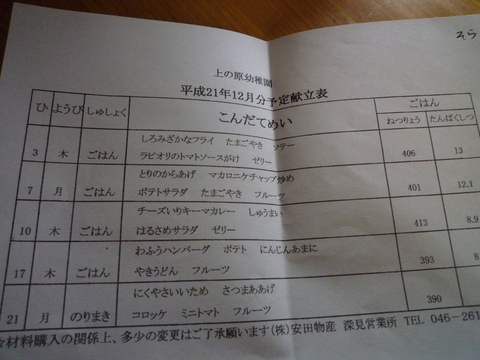 そら
上の原幼稚園
平成21年12月分予定献立表
ひ ようび しゅしょく こんだてめい ごはん
ねつりょう たんぱくしつ
しろみざかなフライ たまごやき ソテー
3 木 ごはん ラビオリのトマトソースがけ ゼリー 406 13
とりのからあげ マカロニケチャップ炒め
7 月 ごはん ポテトサラダ たまごやき フルーツ 401 12.1
チーズいりキーマカレー しゅうまい
10 木 ごはん はるさめサラダ ゼリー 413 8.9
わふうハンバーグ ポテト にんじんあまに
17 木 ごはん やきうどん フルーツ 393 8.
にくやさいいため さつまああげ
21 月 のりまき コロッケ ミニトマト フルーツ 390
☆材料購入の関係上、多少の変更はご了承願います(株)安田物産 深見営業所 TEL 046-261